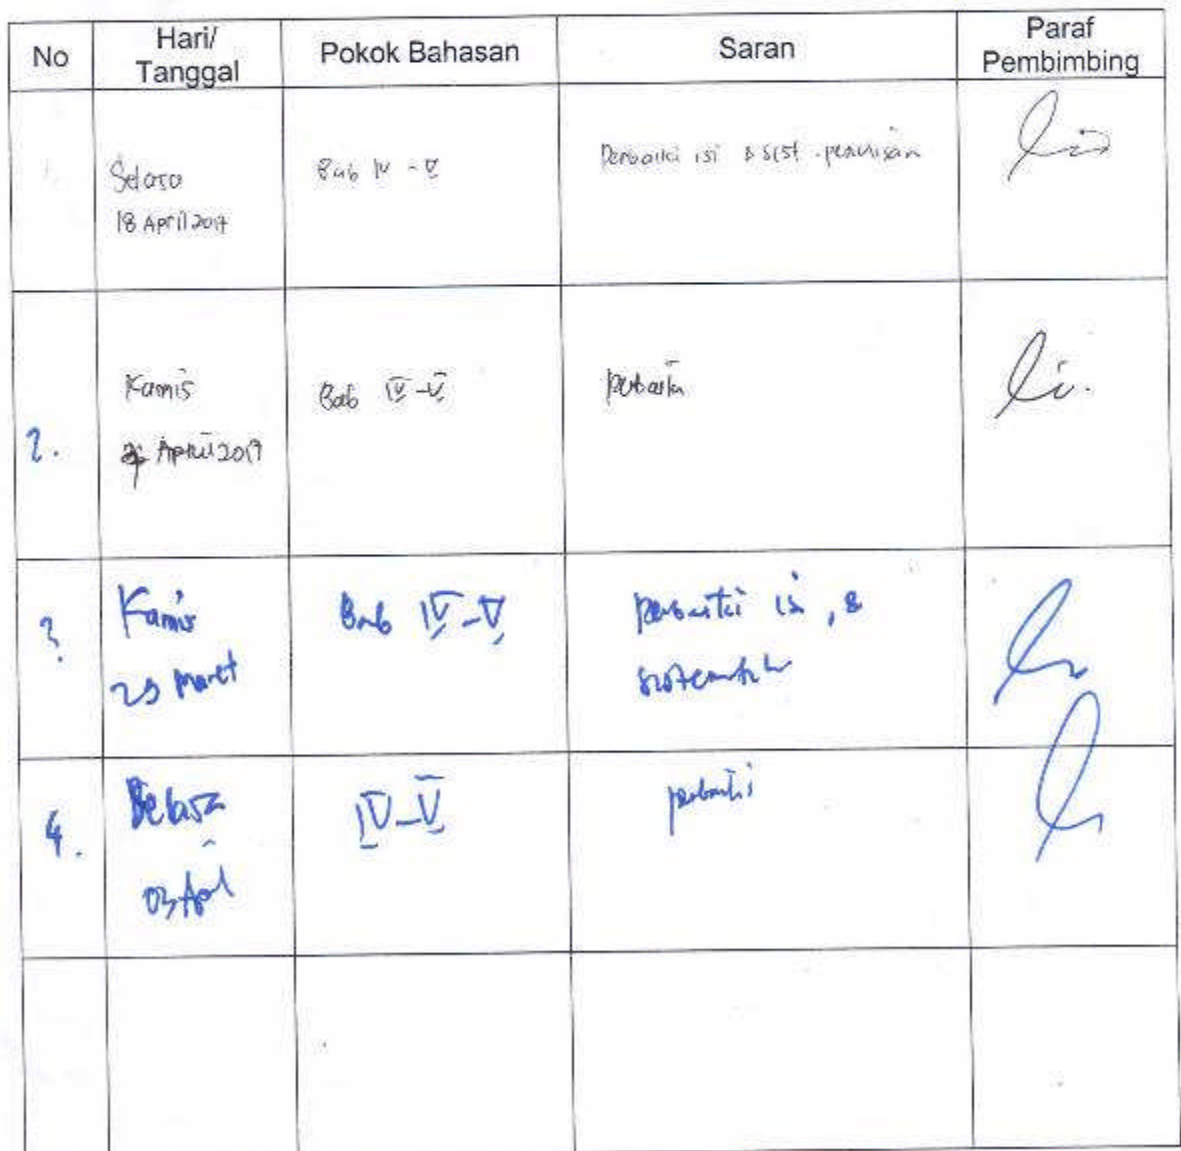 No
Hari/
Tanggal
Pokok Bahasan
Saran
Paraf
Pembimbing
Selasa
18 April 2017
Bab IV - V
Perbaiki isi & sist. penulisan
2.
Kamis
April 2017
Bab IV - V
perbaiki
3
Kamis
29 Maret
Bab IV - V
perbaiki isi, &
sistematika
4.
Selasa
03 April
IV - V
perbaiki